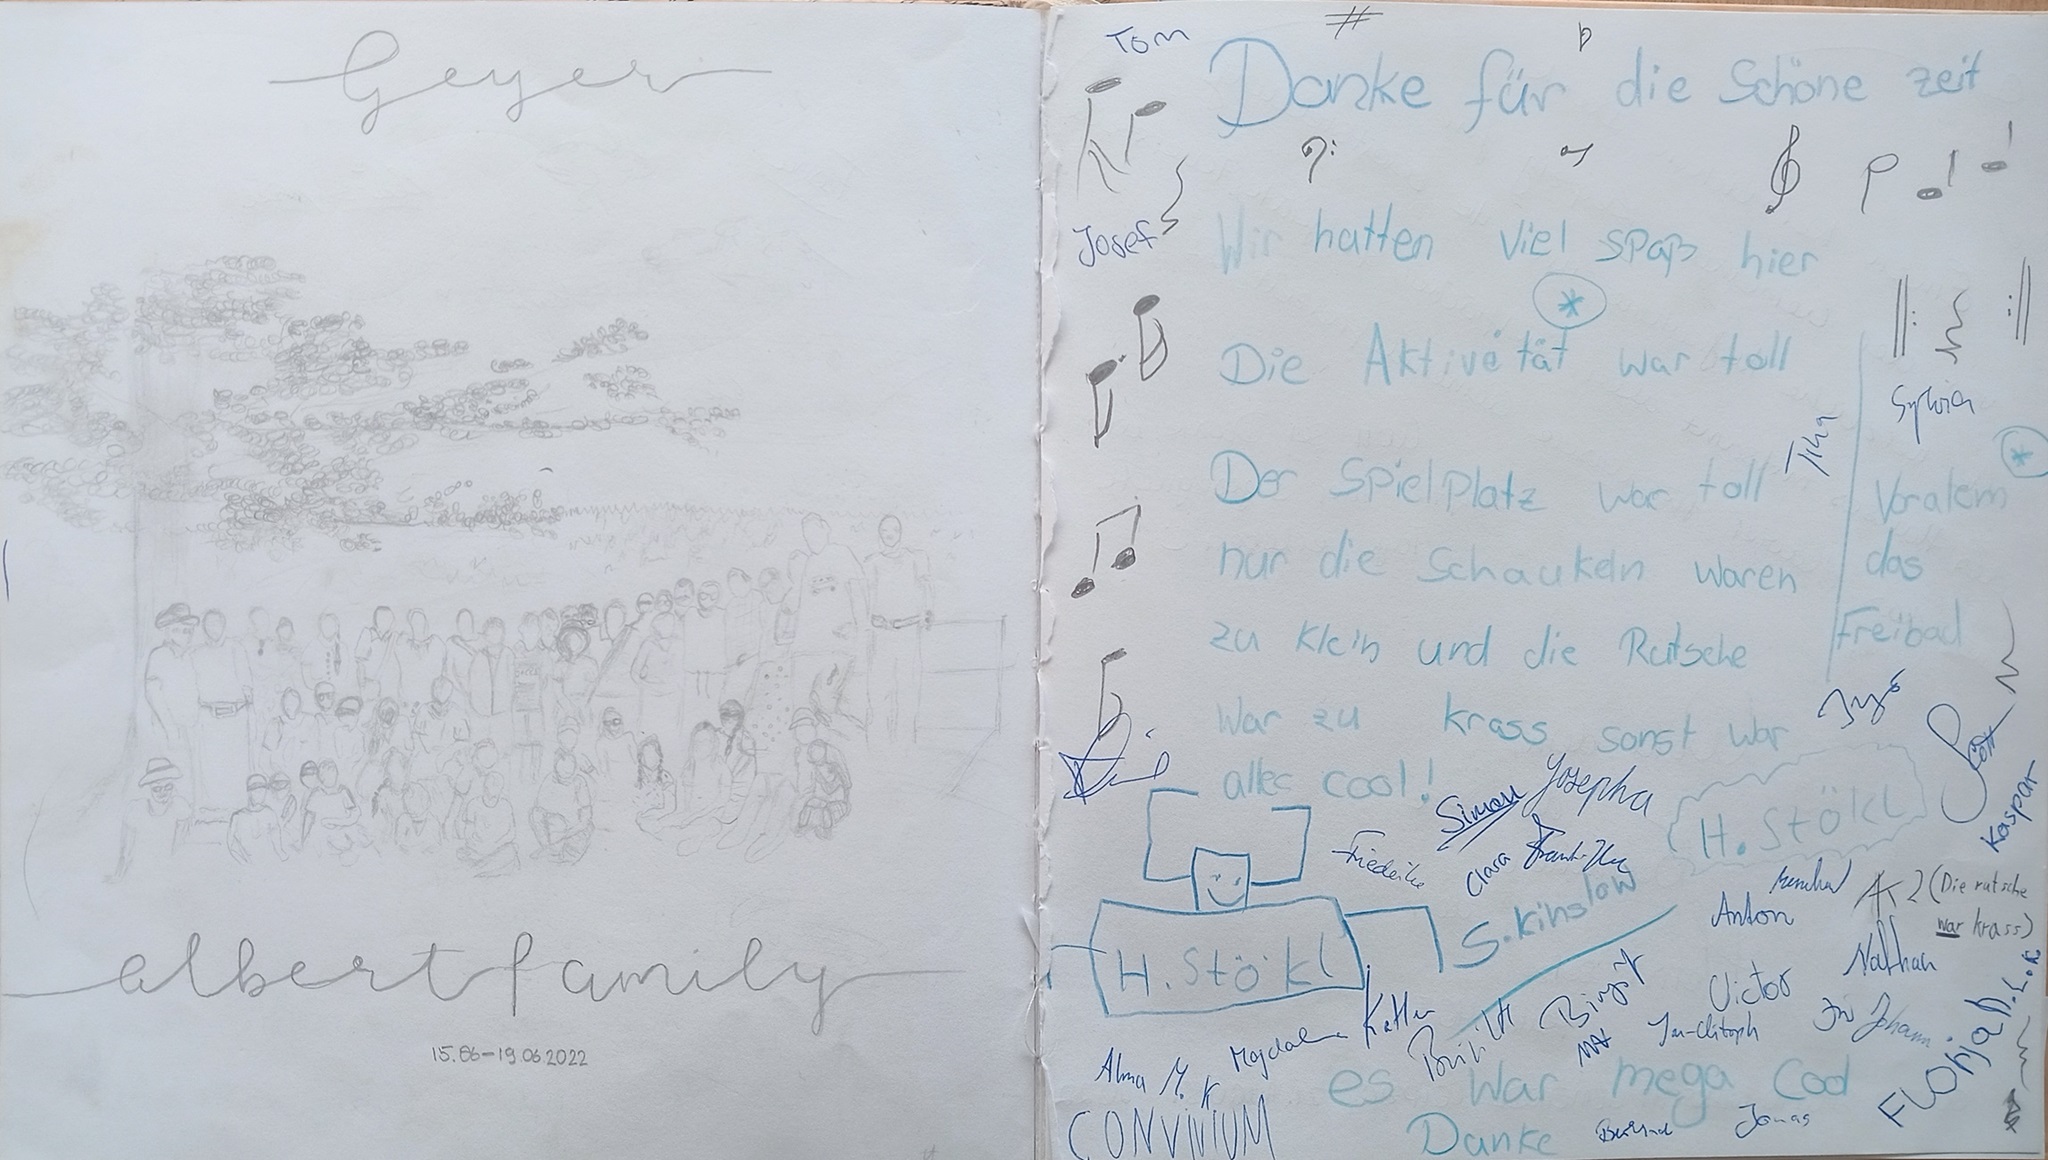 Geyer
albertfamily
15.06-19.06.2022
Tom
Danke für die Schöne zeit
Josef
Wir hatten viel spaß hier
*
Die Aktivität war toll
Sylvia
Tina
*
Der Spielplatz war toll
nur die Schaukeln waren
zu klein und die Rutsche
war zu krass sonst war
alles cool!
Voralem
das
Freibad
Kaspar
Simon
Josepha
H. Stökl
Friederike
Clara
S. Kinslow
Anton
(Die rutsche
war krass)
Nathan
H. Stökl
Victor
Birgit
Johann
Jan-Clitoph
Magdalena
Alma M.
CONVIVIUM
es war mega Cool
Danke
Jonas